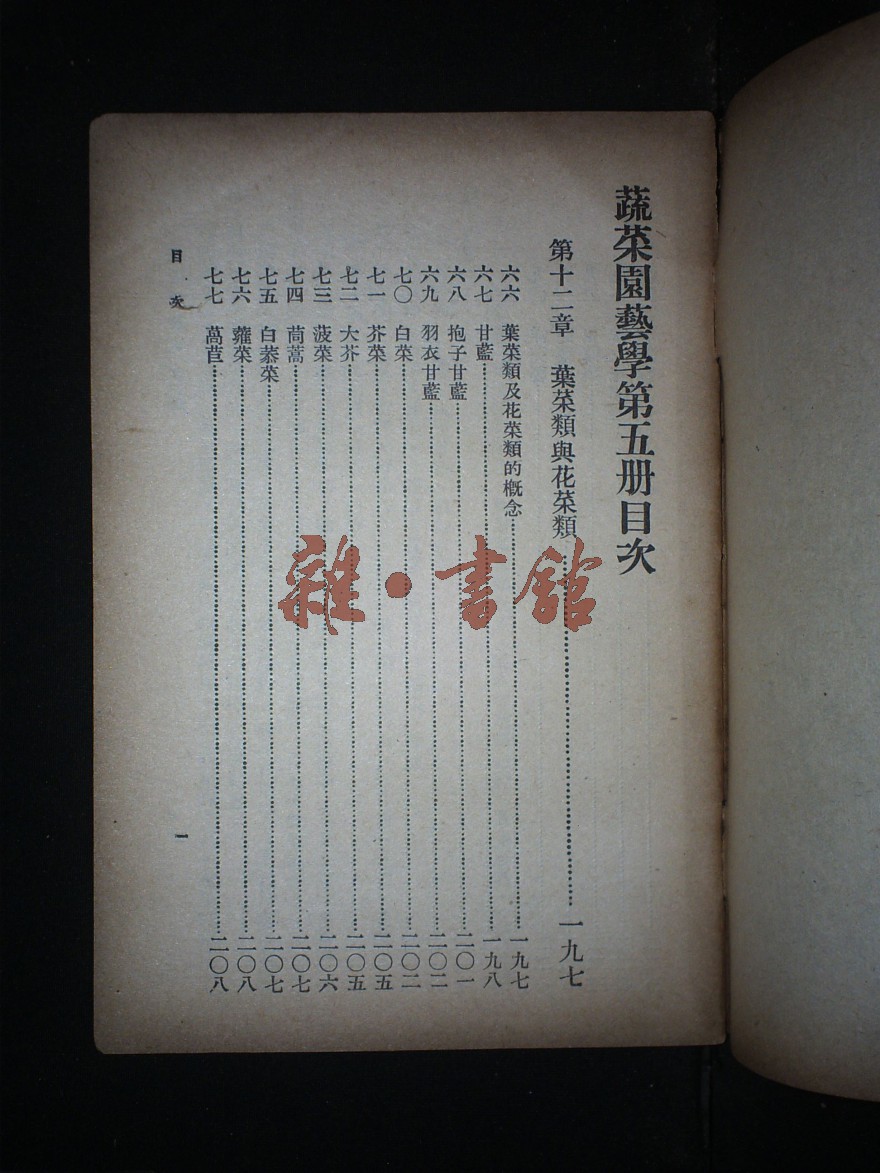 蔬菜園藝學第五册目次
第十二章 葉菜類與花菜類……一九七
六六 葉菜類及花菜類的概念……一九七
六七 甘藍……一九八
六八 抱子甘藍……二〇一
六九 羽衣甘藍……二〇二
七〇 白菜……二〇二
七一 芥菜……二〇五
七二 大芥……二〇五
七三 菠菜……二〇六
七四 茼蒿……二〇七
七五 白菾菜……二〇七
七六 蕹菜……二〇八
七七 萵苣……二〇八
目次
一
雜·書館